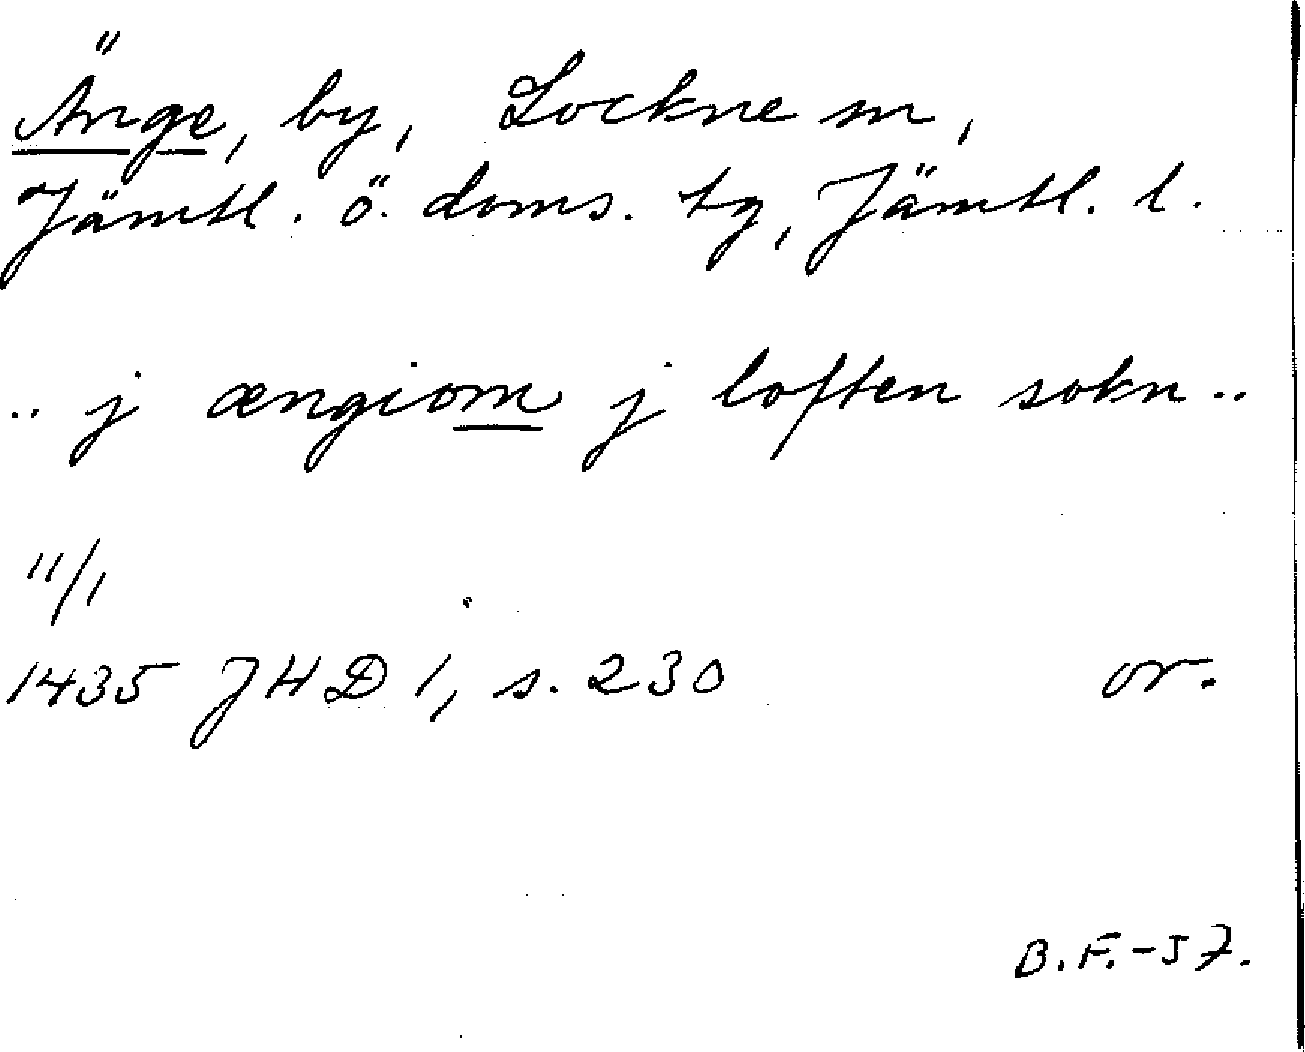 Änge, by, Lockne sn,
Jämtl. ö. doms. tg, Jämtl. l.
.. j ængiom j loften sokn ..
11/1
1435 JHD 1, s. 230 or.
B.F.-57.